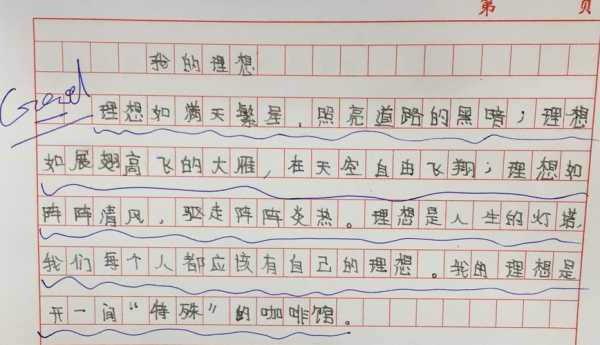 第 页
我的理想
Good
理想如满天繁星，照亮道路的黑暗；理想
如展翅高飞的大雁，在天空自由飞翔；理想如
阵阵清风，驱走阵阵炎热。理想是人生的灯塔，
我们每个人都应该有自己的理想。我的理想是
开一间“特殊”的咖啡馆。